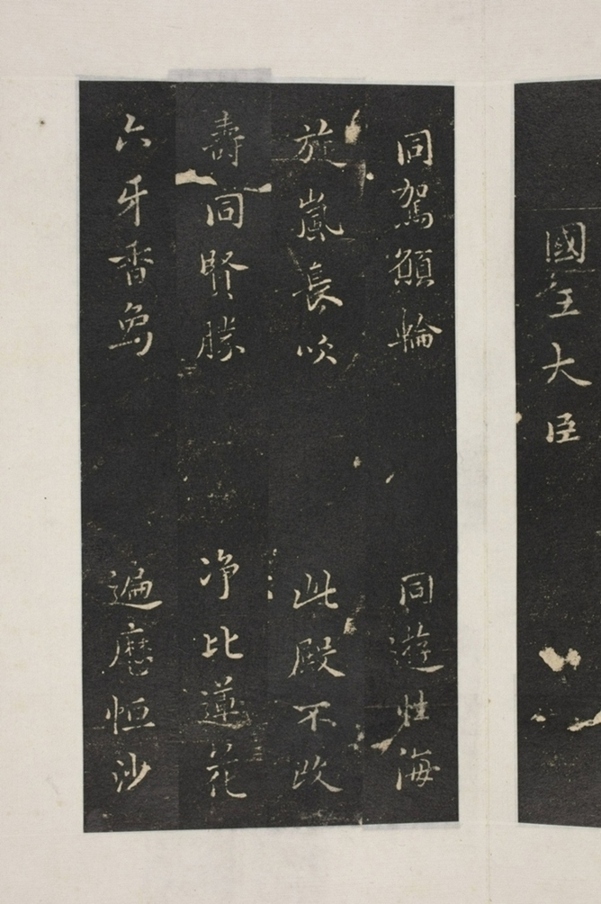 國王大臣
同駕願輪 同遊性海
旋嵐長吹 此殿不改
壽同賢勝 淨比蓮花
六牙香象 遍歷恒沙